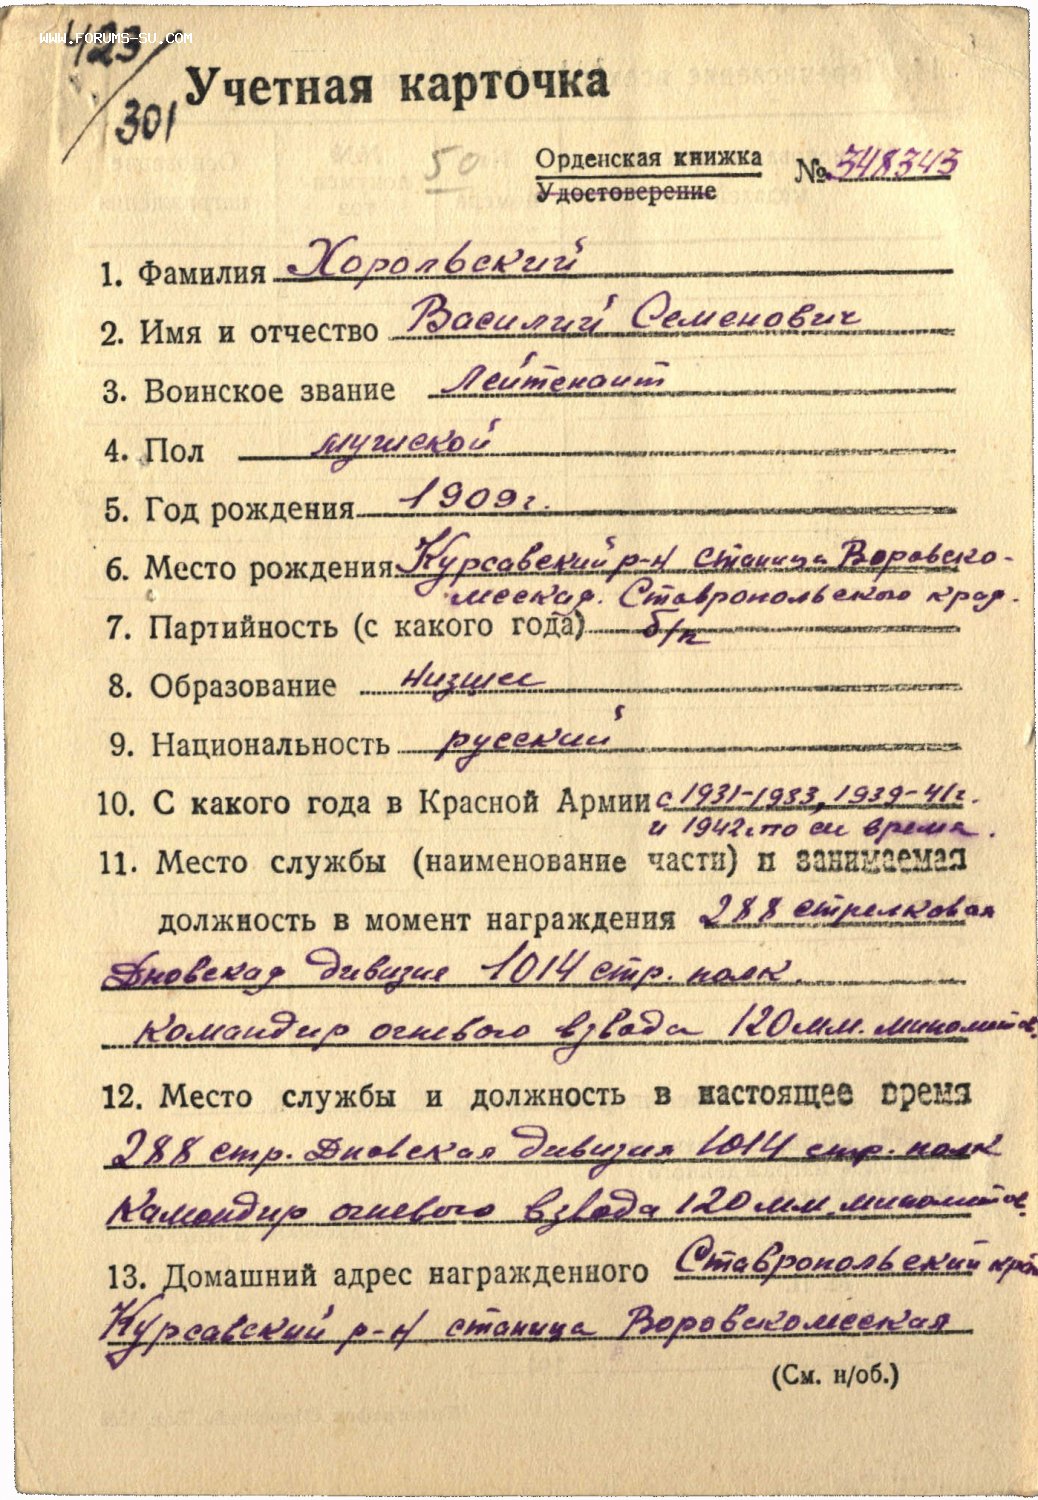 WWW.FORUMS-SU.COM
423/
301
Учетная карточка
50
Орденская книжка № 348343
Удостоверение
1. Фамилия Хорольский
2. Имя и отчество Василий Семенович
3. Воинское звание Лейтенант
4. Пол мужской
5. Год рождения 1909 г.
6. Место рождения Курсавский р-н станица Воровско-
лесская. Ставропольского края.
7. Партийность (с какого года) б/п
8. Образование низшее
9. Национальность русский
10. С какого года в Красной Армии с 1931-1933, 1939-41 г.
и 1942 г. по си время.
11. Место службы (наименование части) и занимаемая
должность в момент награждения 288 стрелковая
Дновская дивизия 1014 стр. полк.
командир огневого взвода 120 мм. минометов.
12. Место службы и должность в настоящее время
288 стр. Дновская дивизия 1014 стр. полк
Камандир огневого взвода 120 мм. минометов.
13. Домашний адрес награжденного Ставропольский край
Курсавский р-н станица Воровсколесская
(См. н/об.)